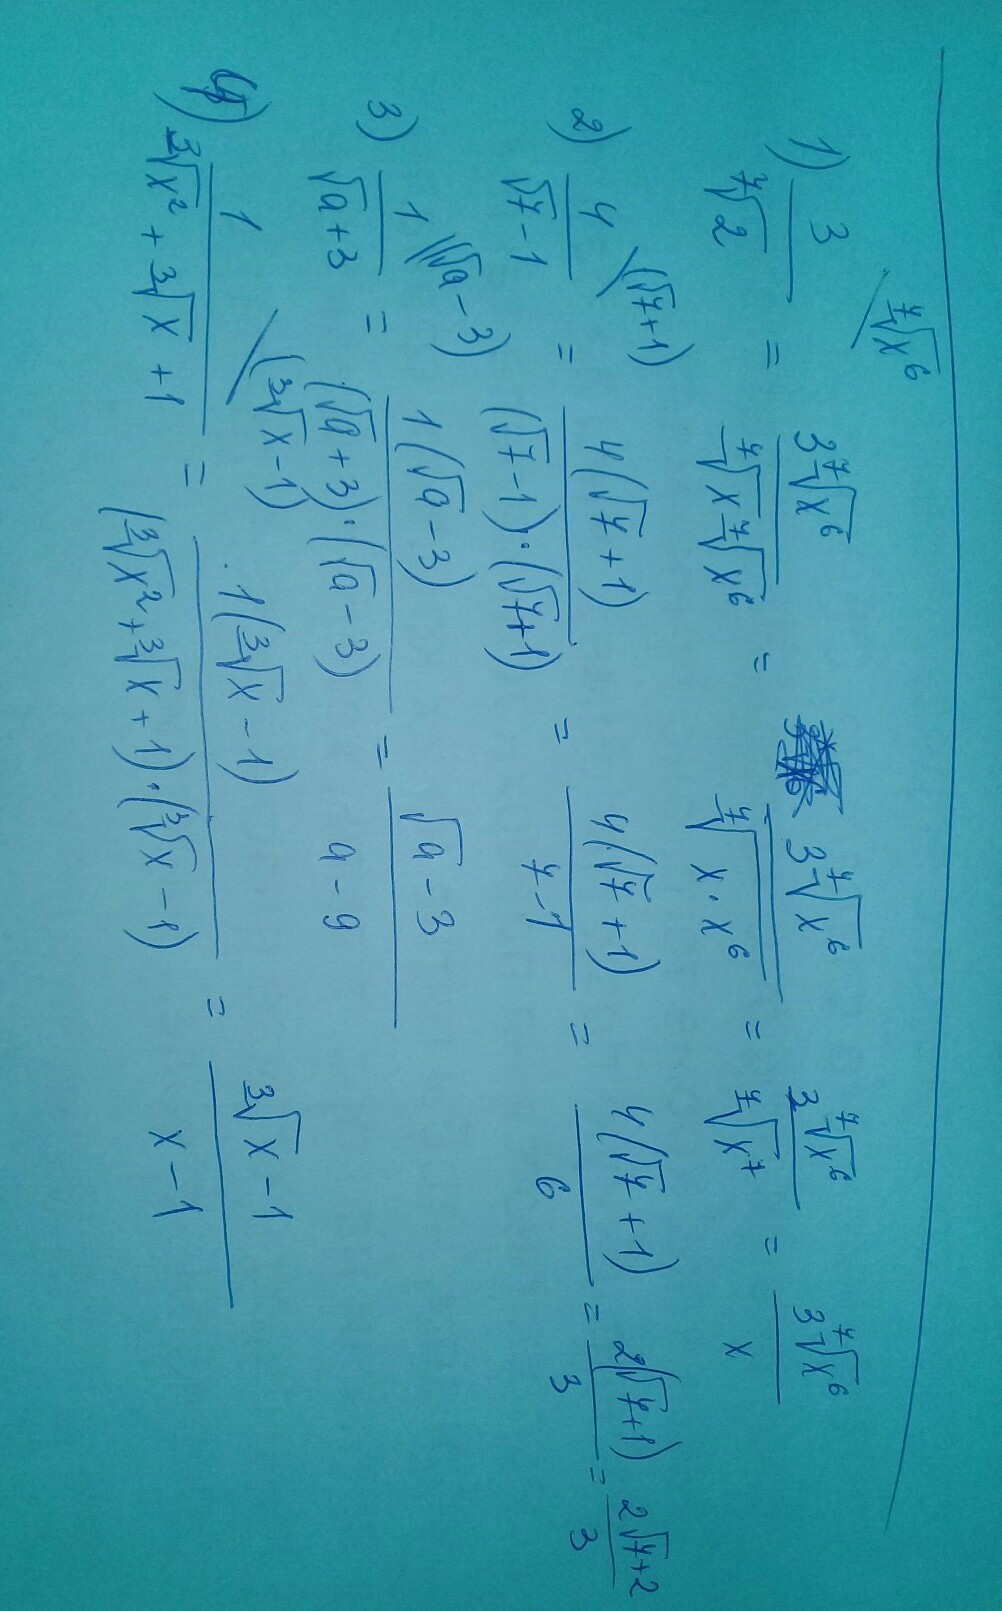 ⁷√x⁶
1) 3/⁷√2 = 3⁷√x⁶/⁷√x ⁷√x⁶ = 3⁷√x⁶/⁷√x·x⁶ = 3⁷√x⁶/⁷√x⁷ = 3⁷√x⁶/x
2) 4/(√7-1) \(√7+1) = 4(√7+1)/(√7-1)·(√7+1) = 4(√7+1)/7-1 = 4(√7+1)/6 = 2(√7+1)/3 = 2√7+2/3
3) 1/(√a+3) \(√a-3) = 1(√a-3)/(√a+3)·(√a-3) = √a-3/a-9
4) 1/(³√x²+³√x+1) \(³√x-1) = 1(³√x-1)/(³√x²+³√x+1)·(³√x-1) = ³√x-1/x-1